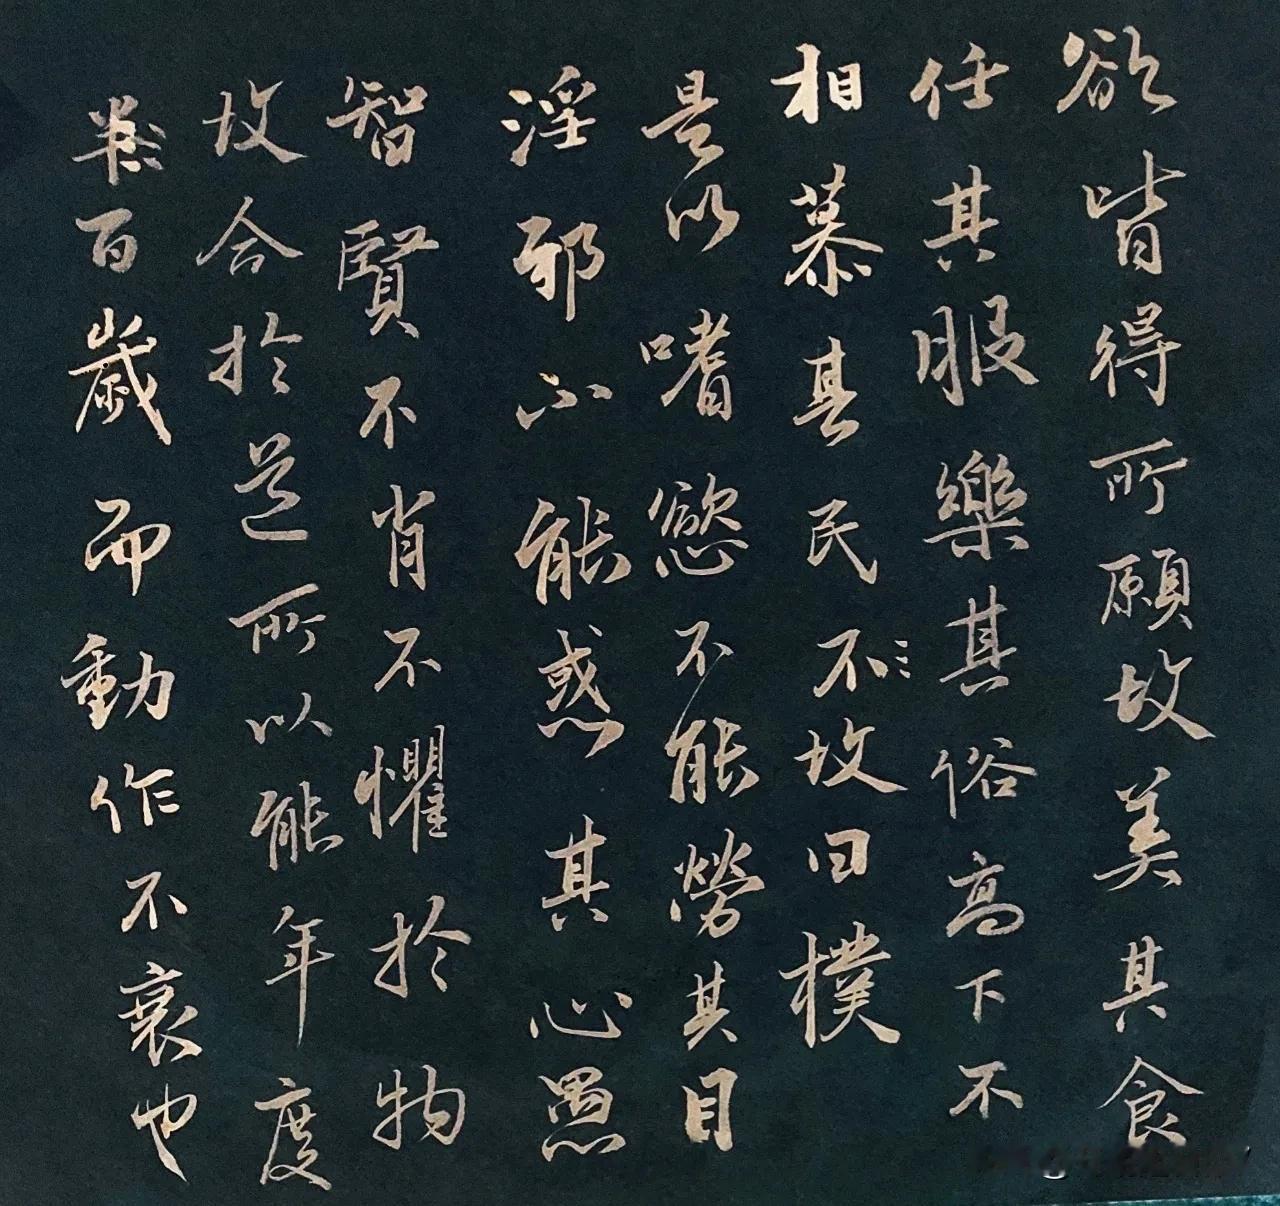 欲皆得所願故美其食
任其服樂其俗高下不
相慕其民不故曰樸
是以嗜慾不能勞其目
淫邪不能惑其心愚
智賢不肖不懼於物
故合於道所以能年度
百歲而動作不衰也